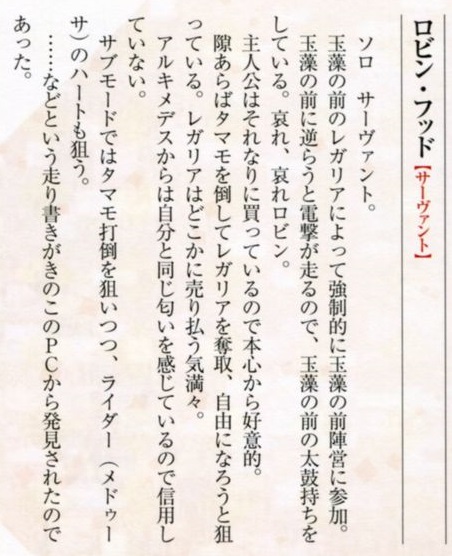 ロビン・フッド【サーヴァント】
ソロ　サーヴァント。
玉藻の前のレガリアによって強制的に玉藻の前陣営に参加。
玉藻の前に逆らうと電撃が走るので、玉藻の前の太鼓持ちを
している。哀れ、哀れロビン。
主人公はそれなりに買っているので本心から好意的。
隙あらばタマモを倒してレガリアを奪取、自由になろうと狙
っている。レガリアはどこかに売り払う気満々。
アルキメデスからは自分と同じ匂いを感じているので信用し
ていない。
サブモードではタマモ打倒を狙いつつ、ライダー（メドゥー
サ）のハートも狙う。
……などという走り書きがきのこのPCから発見されたので
あった。